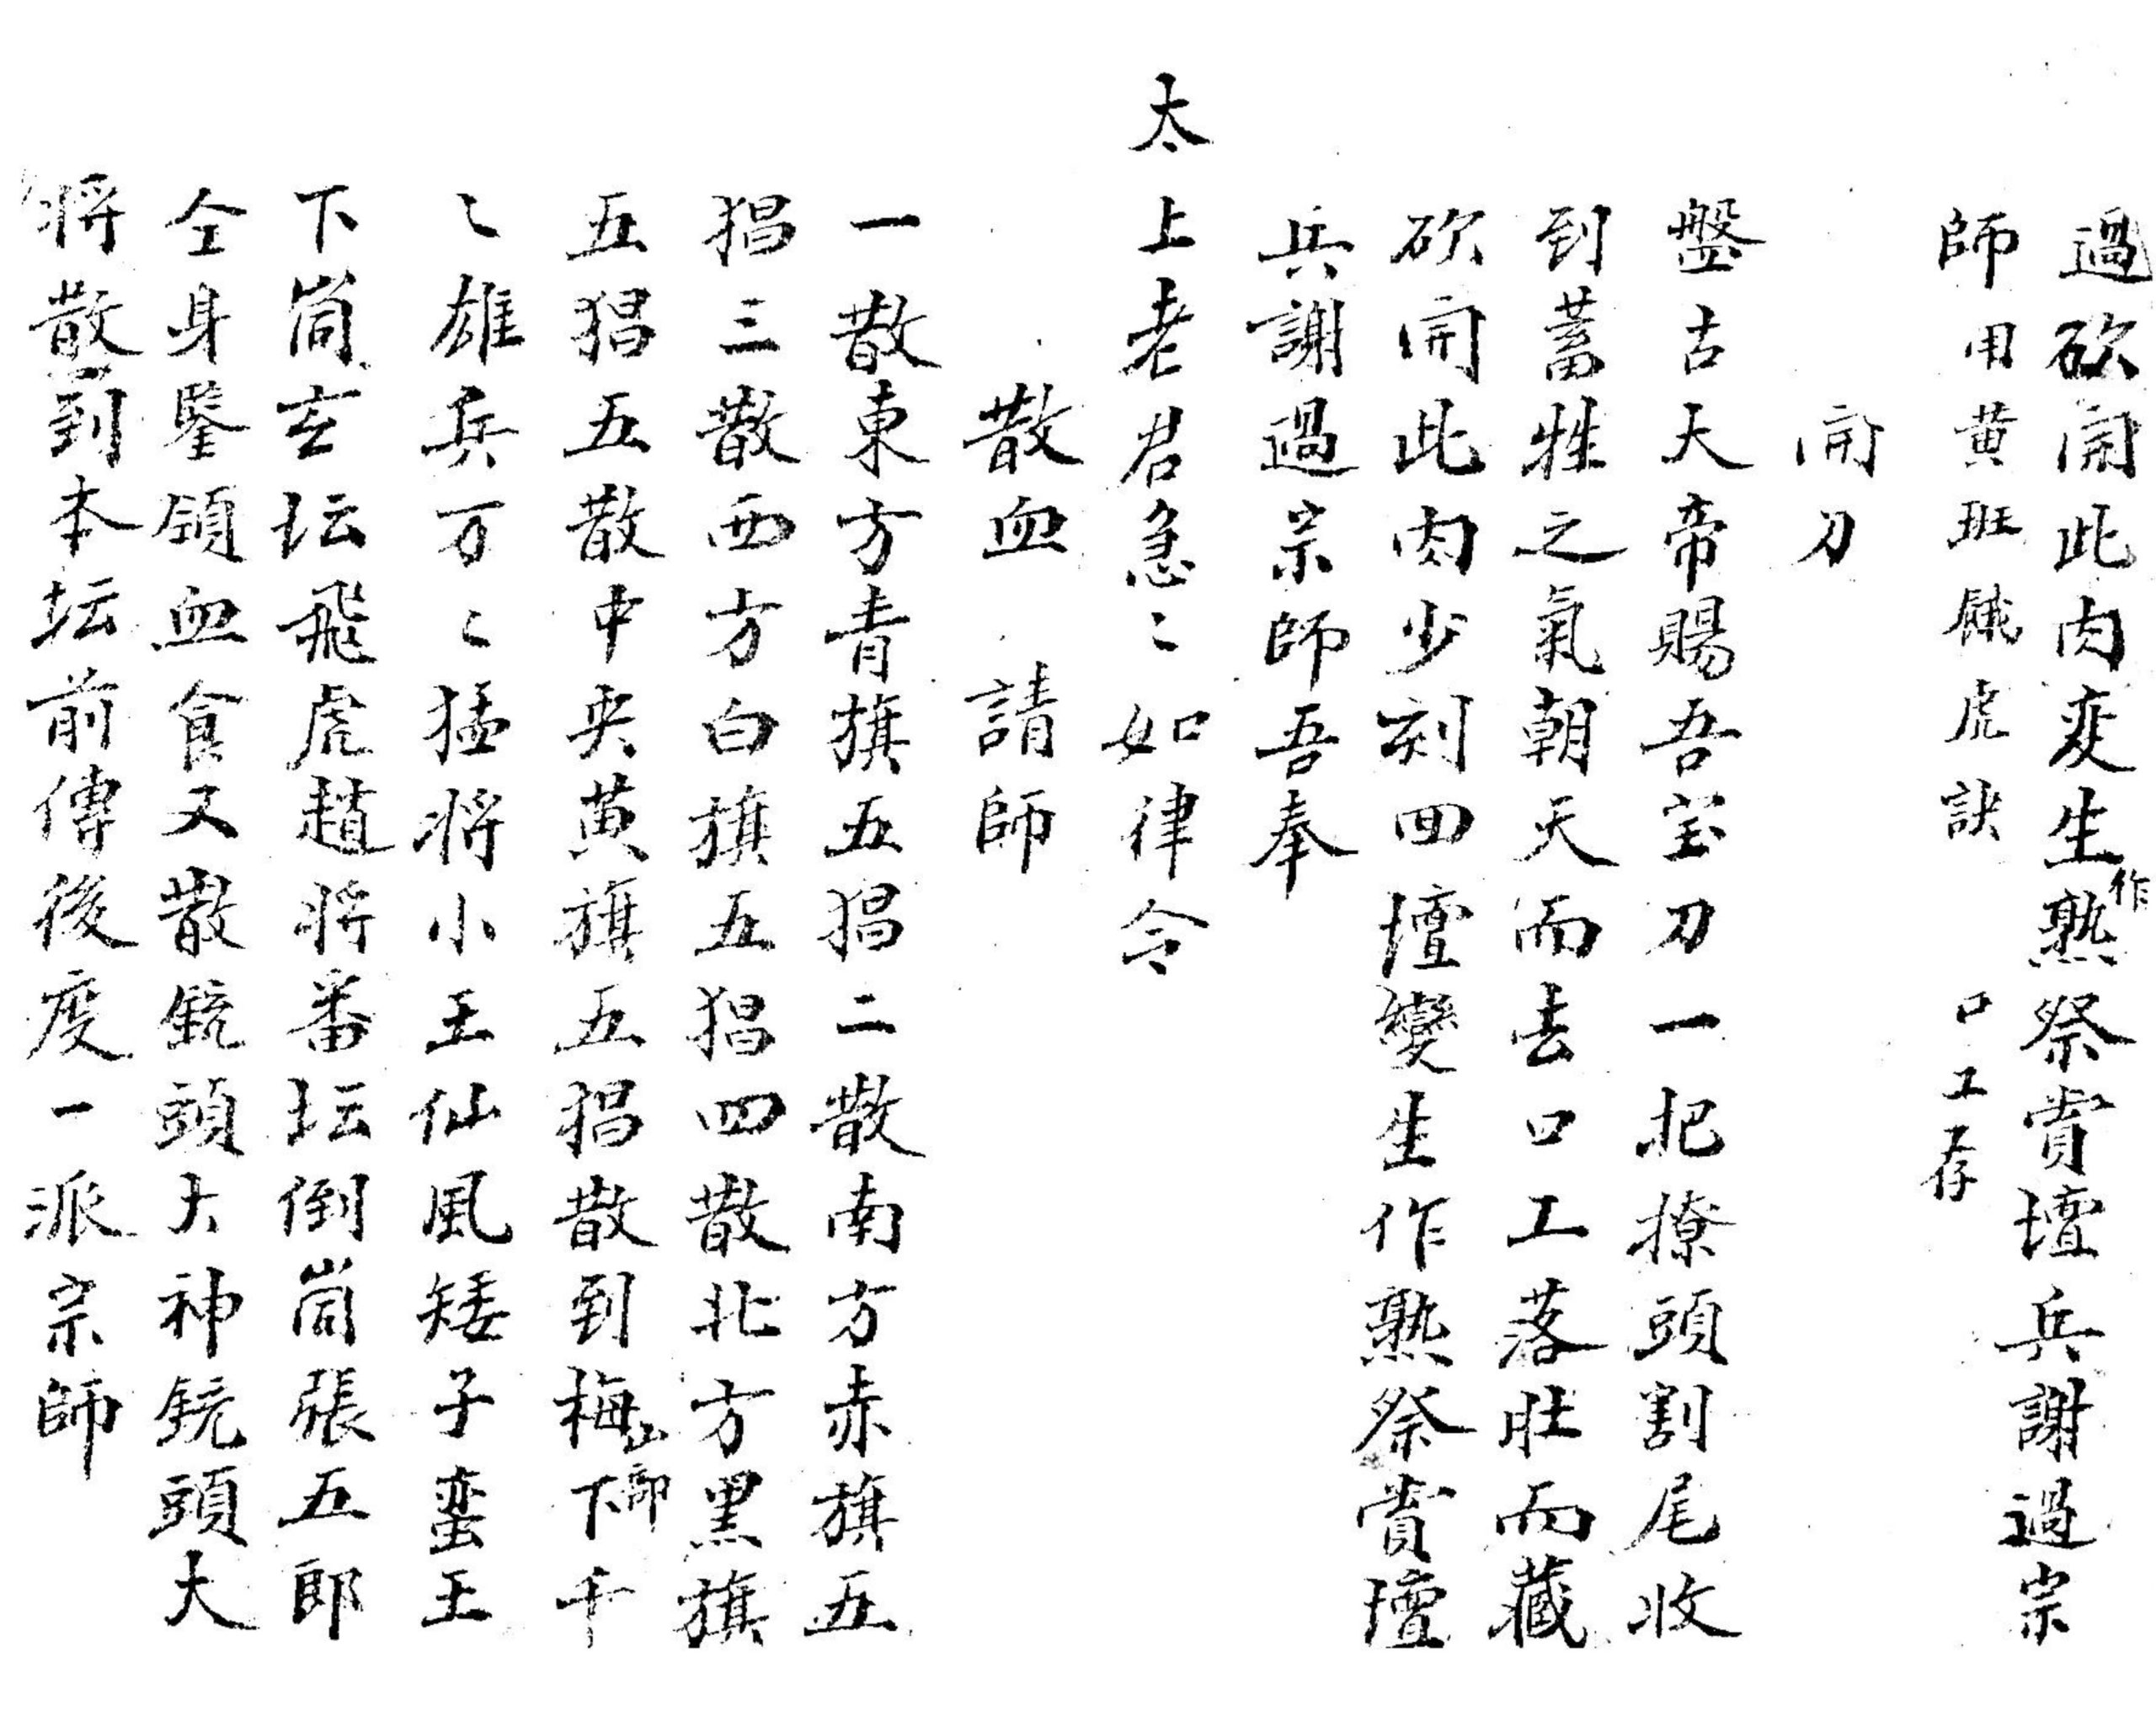 過砍開此肉变生作熟祭賞壇兵謝過宗
師用黄班餓虎訣 口工存
開刀
盤古天帝賜吾宝刀一把撩頭割尾收
到蓄牲之氣朝天而去口工落肚而藏
砍開此肉少刻四壇變生作熟祭賞壇
兵謝過宗師吾奉
太上老君急〻如律令
散血 請師
一散東方青旗五猖二散南方赤旗五
猖三散西方白旗五猖四散北方黑旗
五猖五散中央黄旗五猖散到梅山部下千
〻雄兵万〻猛将小王仙風矮子蛮王
下峝玄坛飛虎趙将番坛倒峝張五郎
仝身鑒領血食又散銃頭大神銃頭大
将散到本坛前傳後度一派宗師